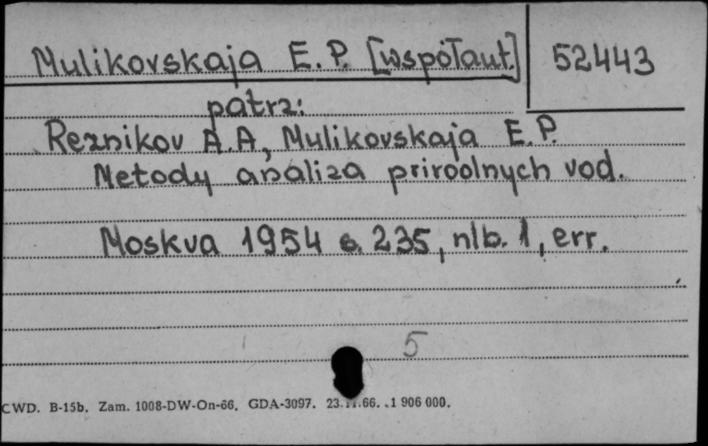 Mulikovskaja E.P. [współaut.] 52443
patrz:
Reznikov A.A, Mulikovskaja E.P.
Metody analiza prirodnych vod.
Moskva 1954 s. 235, nlb. 1, err.
5
CWD. B-15b. Zam. 1008-DW-On-66. GDA-3097. 23.11.66. 1 906 000.